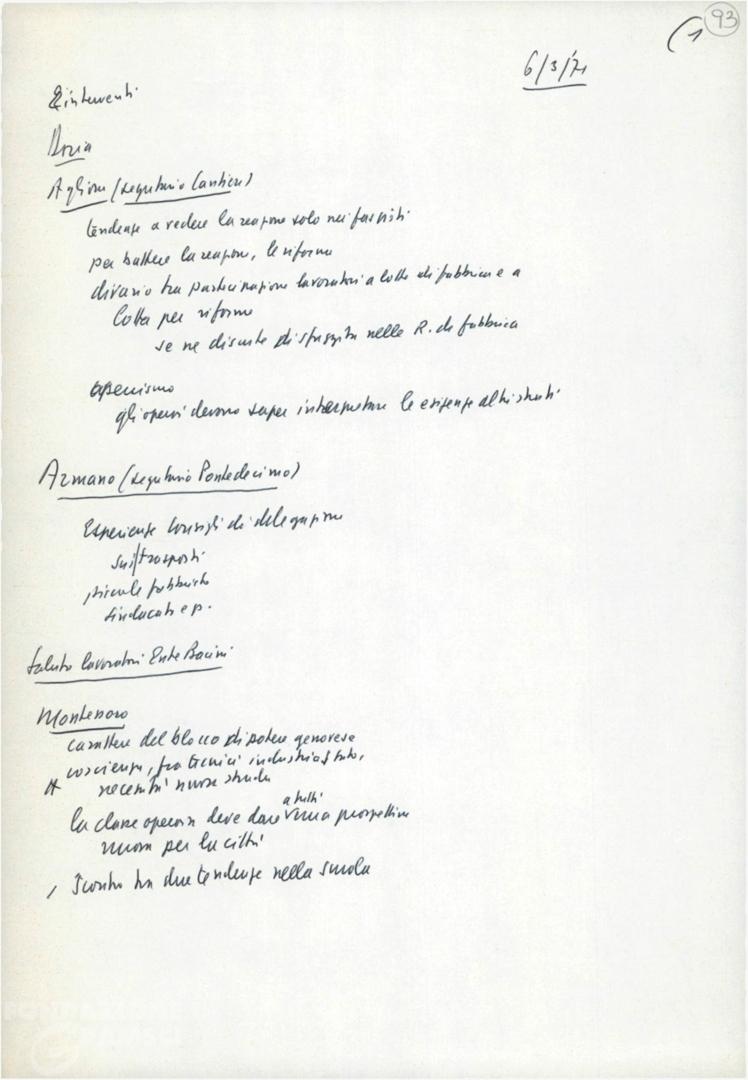 93
(1
6/3/71
Interventi
Doria
Aglione (segretario Cantieri)
tendenze a vedere la reazione solo nei fascisti
per battere la reazione, le riforme
divario tra partecipazione lavoratori a lotte di fabbrica e a
lotta per riforme
se ne discute di sfuggita nelle R. di fabbrica
operaismo
gli operai devono saper interpretare le esigenze altri strati
Armano (segretario Pontedecimo)
Esperienze consigli di delegazione
sui trasporti
piccole fabbriche
sindacati e p.
Saluto lavoratori Ente Bacini
Montessoro
carattere del blocco di potere genovese
coscienza, fra tecnici industria stato,
necessità nuova strada
la classe operaia deve dare a tutti una prospettiva
nuova per la città
Scontro tra due tendenze nella scuola
FONDAZIONE
GRAMSCI